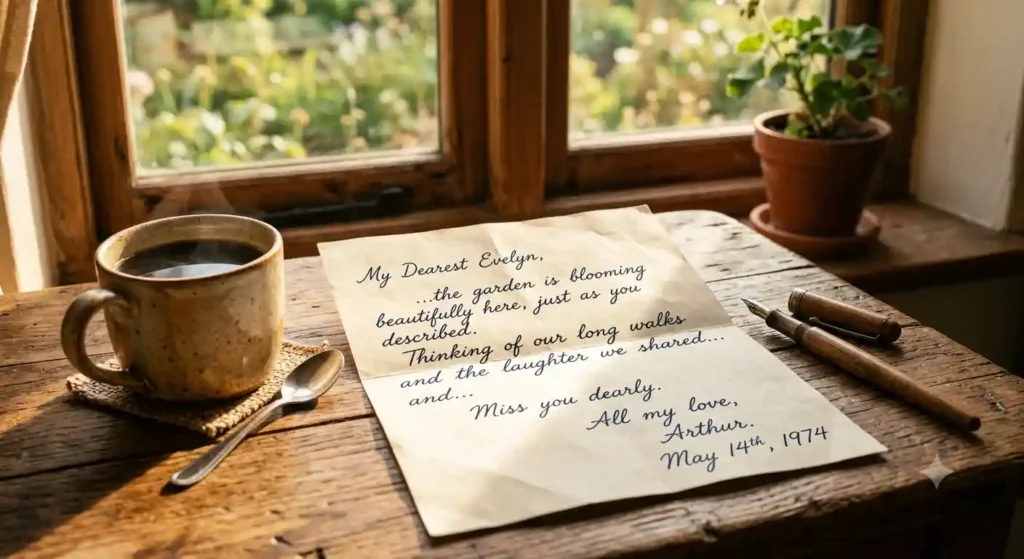 My Dearest Evelyn,
...the garden is blooming
beautifully here, just as you
described.
Thinking of our long walks
and the laughter we shared...
and...
Miss you dearly.
All my love,
Arthur.
May 14th, 1974